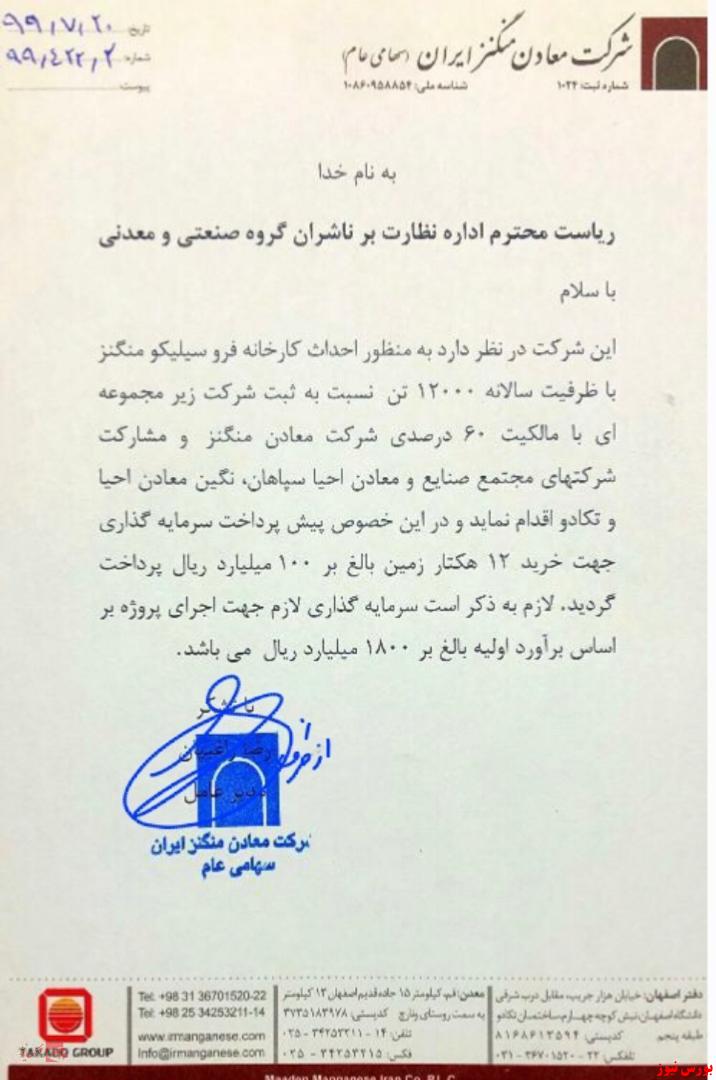 شرکت معادن منگنز ایران (سهامی عام)
شماره ثبت: ۱۰۲۴ شناسه ملی: ۱۰۸۶۰۹۵۸۸۵۴
تاریخ: ۹۹,۷,۲۰
شماره: ۹۹,۴۲۲,۲
پیوست:
به نام خدا
ریاست محترم اداره نظارت بر ناشران گروه صنعتی و معدنی
با سلام
این شرکت در نظر دارد به منظور احداث کارخانه فرو سیلیکو منگنز
با ظرفیت سالانه ۱۲۰۰۰ تن نسبت به ثبت شرکت زیر مجموعه
ای با مالکیت ۶۰ درصدی شرکت معادن منگنز و مشارکت
شرکتهای مجتمع صنایع و معادن احیا سپاهان، نگین معادن احیا
و تکادو اقدام نماید و در این خصوص پیش پرداخت سرمایه گذاری
جهت خرید ۱۲ هکتار زمین بالغ بر ۱۰۰ میلیارد ریال پرداخت
گردید. لازم به ذکر است سرمایه گذاری لازم جهت اجرای پروژه بر
اساس برآورد اولیه بالغ بر ۱۸۰۰ میلیارد ریال می باشد.
با تشکر
رضا راغبیان
مدیر عامل
شرکت معادن منگنز ایران
سهامی عام
دفتر اصفهان: خیابان هزار جریب، مقابل درب شرقی
دانشگاه اصفهان، نبش کوچه چهارم، ساختمان تکادو
طبقه پنجم کدپستی: ۸۱۶۸۶۱۳۵۹۴
تلفکس: ۲۲ - ۳۶۷۰۱۵۲۰ - ۰۳۱
معدن: قم، کیلومتر ۱۵ جاده قدیم اصفهان ۱۳ کیلومتر
به سمت روستای ونارچ کدپستی: ۳۷۳۵۱۸۳۹۷۸
تلفن: ۱۴ - ۳۴۲۵۳۲۱۱ - ۰۲۵
فکس: ۳۴۲۵۳۲۱۵ - ۰۲۵
Tel: +98 31 36701520-22
Tel: +98 25 34253211-14
www.irmanganese.com
Info@irmanganese.com
TAKADO GROUP
Maaden Manganese Iran Co. P.L.C
بورس نیوز